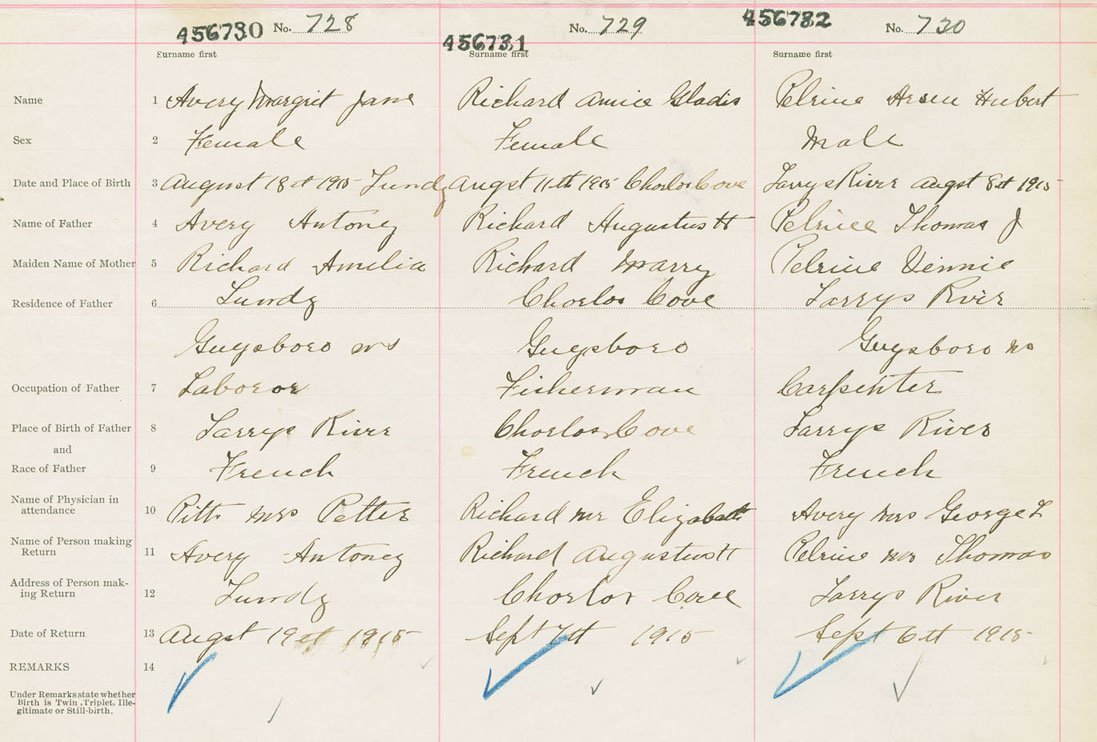 456730 No. 728 456731 No. 729 456732 No. 730
Surname first Surname first Surname first
Name 1 Avery Margret Jane Richard Amice Gladis Pelrine Hubert
Sex 2 Female Female Male
Date and Place of Birth 3 August 18st 1915 Lundy Augst 11th 1915 Chorlos Cove Larrys River augst 8st 1915
Name of Father 4 Avery Antoney Richard Augustus H Pelrine Thomas J
Maiden Name of Mother 5 Richard Amelia Richard Marry Pelrine Vennie
Residence of Father 6 Lundy Chorlos Cove Larrys River
Guysboro ns Guysboro Guysboro ns
Occupation of Father 7 Laboror Fisherman Carpenter
Place of Birth of Father 8 Larrys River Chorlos Cove Larrys River
and
Race of Father 9 French French French
Name of Physician in
attendance 10 Pitts Mrs Petter Richard mr Elizabath Avery Mrs George L
Name of Person making
Return 11 Avery Antoney Richard Augustus H Pelrine mr Thomas
Address of Person mak-
ing Return 12 Lundy Chorlos Cove Larrys River
Date of Return 13 Augst 19st 1915 Sept 7th 1915 Sept 6th 1915
REMARKS 14
Under Remarks state whether
Birth is Twin, Triplet, Ille-
gitimate or Still-birth.